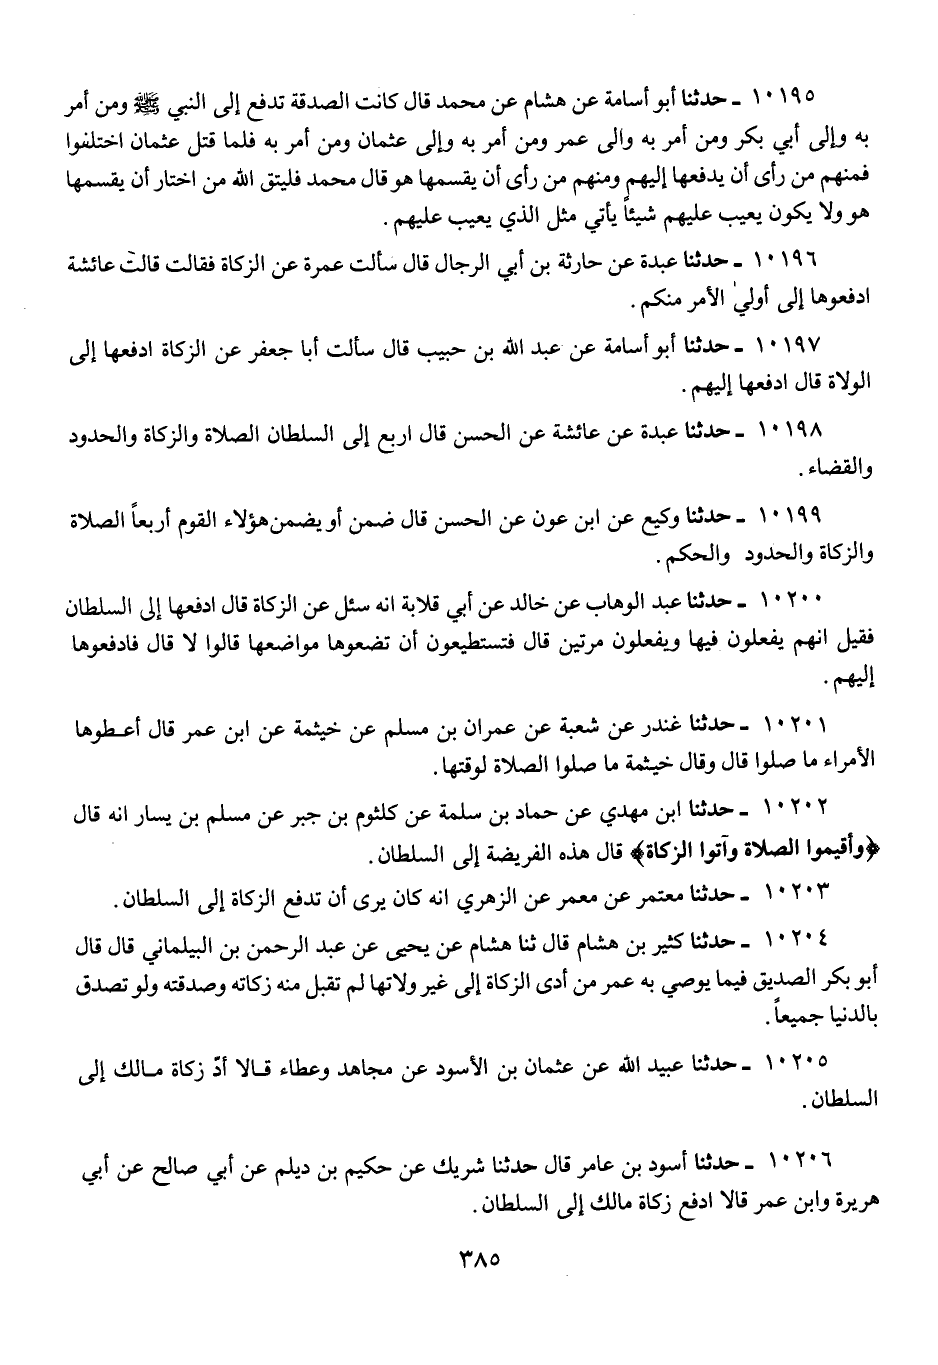 ١٠١٩٥ - حدثنا أبو أسامة عن هشام عن محمد قال كانت الصدقة تدفع إلى النبي ﷺ ومن أمر
به وإلى أبي بكر ومن أمر به والى عمر ومن أمر به وإلى عثمان ومن أمر به فلما قتل عثمان اختلفوا
فمنهم من رأى أن يدفعها إليهم ومنهم من رأى أن يقسمها هو قال محمد فليتق الله من اختار أن يقسمها
هو ولا يكون يعيب عليهم شيئاً يأتي مثل الذي يعيب عليهم .
١٠١٩٦ - حدثنا عبدة عن حارثة بن أبي الرجال قال سألت عمرة عن الزكاة فقالت قالت عائشة
ادفعوها إلى أولي الأمر منكم .
١٠١٩٧ - حدثنا أبو أسامة عن عبد الله بن حبيب قال سألت أبا جعفر عن الزكاة ادفعها إلى
الولاة قال ادفعها إليهم .
١٠١٩٨ - حدثنا عبدة عن عائشة عن الحسن قال اربع إلى السلطان الصلاة والزكاة والحدود
والقضاء .
١٠١٩٩ - حدثنا وكيع عن ابن عون عن الحسن قال ضمن أو يضمن هؤلاء القوم أربعاً الصلاة
والزكاة والحدود والحكم .
١٠٢٠٠ - حدثنا عبد الوهاب عن خالد عن أبي قلابة انه سئل عن الزكاة قال ادفعها إلى السلطان
فقيل انهم يفعلون فيها ويفعلون مرتين قال فتستطيعون أن تضعوها مواضعها قالوا لا قال فادفعوها
إليهم .
١٠٢٠١ - حدثنا غندر عن شعبة عن عمران بن مسلم عن خيثمة عن ابن عمر قال أعطوها
الأمراء ما صلوا قال وقال خيثمة ما صلوا الصلاة لوقتها .
١٠٢٠٢ - حدثنا ابن مهدي عن حماد بن سلمة عن كلثوم بن جبر عن مسلم بن يسار انه قال
﴿وأقيموا الصلاة وآتوا الزكاة﴾ قال هذه الفريضة إلى السلطان .
١٠٢٠٣ - حدثنا معتمر عن معمر عن الزهري انه كان يرى أن تدفع الزكاة إلى السلطان .
١٠٢٠٤ - حدثنا كثير بن هشام قال ثنا هشام عن يحيى عن عبد الرحمن بن البيلماني قال قال
أبو بكر الصديق فيما يوصي به عمر من أدى الزكاة إلى غير ولاتها لم تقبل منه زكاته وصدقته ولو تصدق
بالدنيا جميعاً .
١٠٢٠٥ - حدثنا عبيد الله عن عثمان بن الأسود عن مجاهد وعطاء قالا أدّ زكاة مالك إلى
السلطان .
١٠٢٠٦ - حدثنا أسود بن عامر قال حدثنا شريك عن حكيم بن ديلم عن أبي صالح عن أبي
هريرة وابن عمر قالا ادفع زكاة مالك إلى السلطان .
٣٨٥